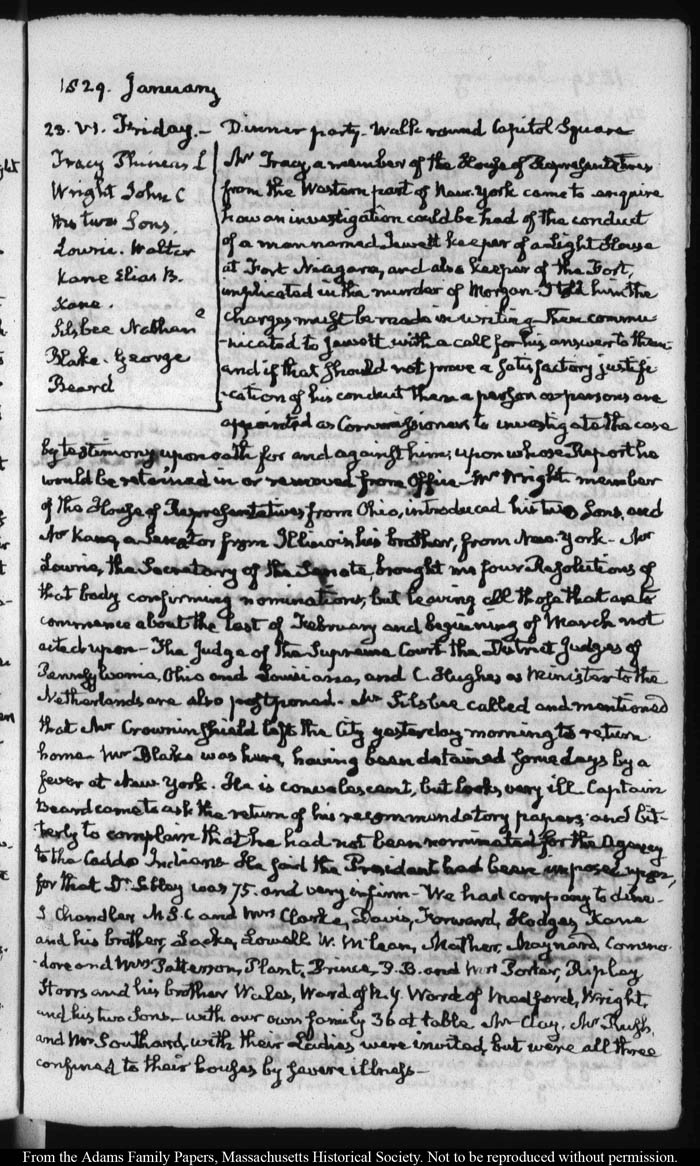 1829. January
23. VI. Friday.— Dinner party. Walk round Capitol Square
Tracy Phineas L
Wright John C
His two Sons.
Lowrie. Walter
Kane Elias K.
Kane.
Silsbee Nathan
Blake. George
Beard
Mr Tracy a member of the House of Representatives
from the Western part of New-York came to enquire
how an investigation could be had of the conduct
of a man named Jewett keeper of a Light House
at Fort Niagara, and also keeper of the Fort,
implicated in the murder of Morgan—I told him the
charges must be made in writing—Then commu
-nicated to Jewett with a call for his answer to them
and if that should not prove a satisfactory justifi
-cation of his conduct then a person or persons are
appointed as Commissioners to investigate the case
by testimony upon oath for and against him; upon whose Report he
would be retained in or removed from Office—Mr Wright member
of the House of Representatives from Ohio, introduced his two Sons, and
Mr Kane, a Senator from Illinois his brother, from New-York—Mr
Lowrie, the Secretary of the Senate, brought me four Resolutions of
that body confirming nominations, but leaving all those that are to
commence about the last of February and beginning of March not
acted upon—The Judge of the Supreme Court the District Judges of
Pennsylvania, Ohio and Louisiana, and C. Hughes as Minister to the
Netherlands are also postponed—Mr Silsbee called and mentioned
that Mr Crowninshield left the City yesterday morning to return
home—Mr Blake was here, having been detained some days by a
fever at New York. He is convalescent, but looks very ill Captain
Beard came to ask the return of his recommendatory papers; and bit-
terly to complain that he had not been nominated for the Agency
to the Caddo Indians—He said the President had been imposed upon,
for that Dr. Sibley was 75. and very infirm—We had company to dine—
J Chandler, M. S. C and Mrs Clarke, Davis, Forward, Hodges, Kane
and his brother, Locke, Lowell W. McLean, Mather, Maynard, Commo
-dore and Mrs Patterson, Plant, Prince, P. B. and Mrs Porter, Ripley
Storrs and his brother Wales, Ward of N.Y. Ward of Medford, Wright,
and his two Sons—with our own family 36 at table Mr Clay. Mr Rush,
and Mr Southard, with their Ladies were invited, but were all three
confined to their houses by severe illness—
From the Adams Family Papers, Massachusetts Historical Society. Not to be reproduced without permission.